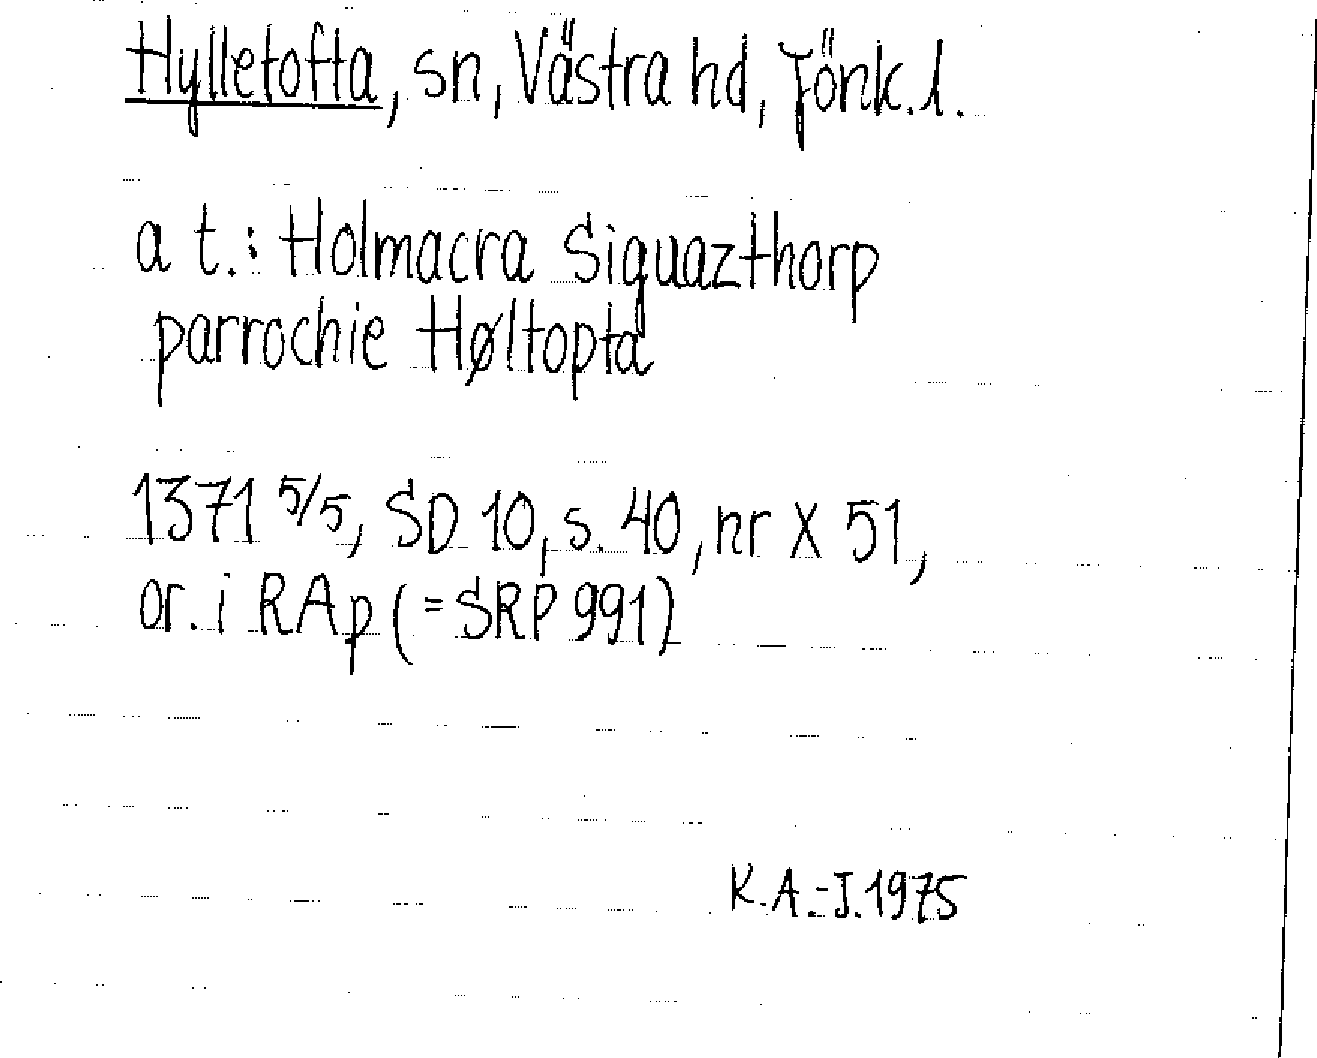 Hylletofta, sn, Västra hd, Jönk.l.
a t.: Holmacra Siguazthorp
parrochie Høltopta
1371 5/5, SD 10, s. 40, nr X 51,
or. i RAp (= SRP 991)
K.A.-J. 1975